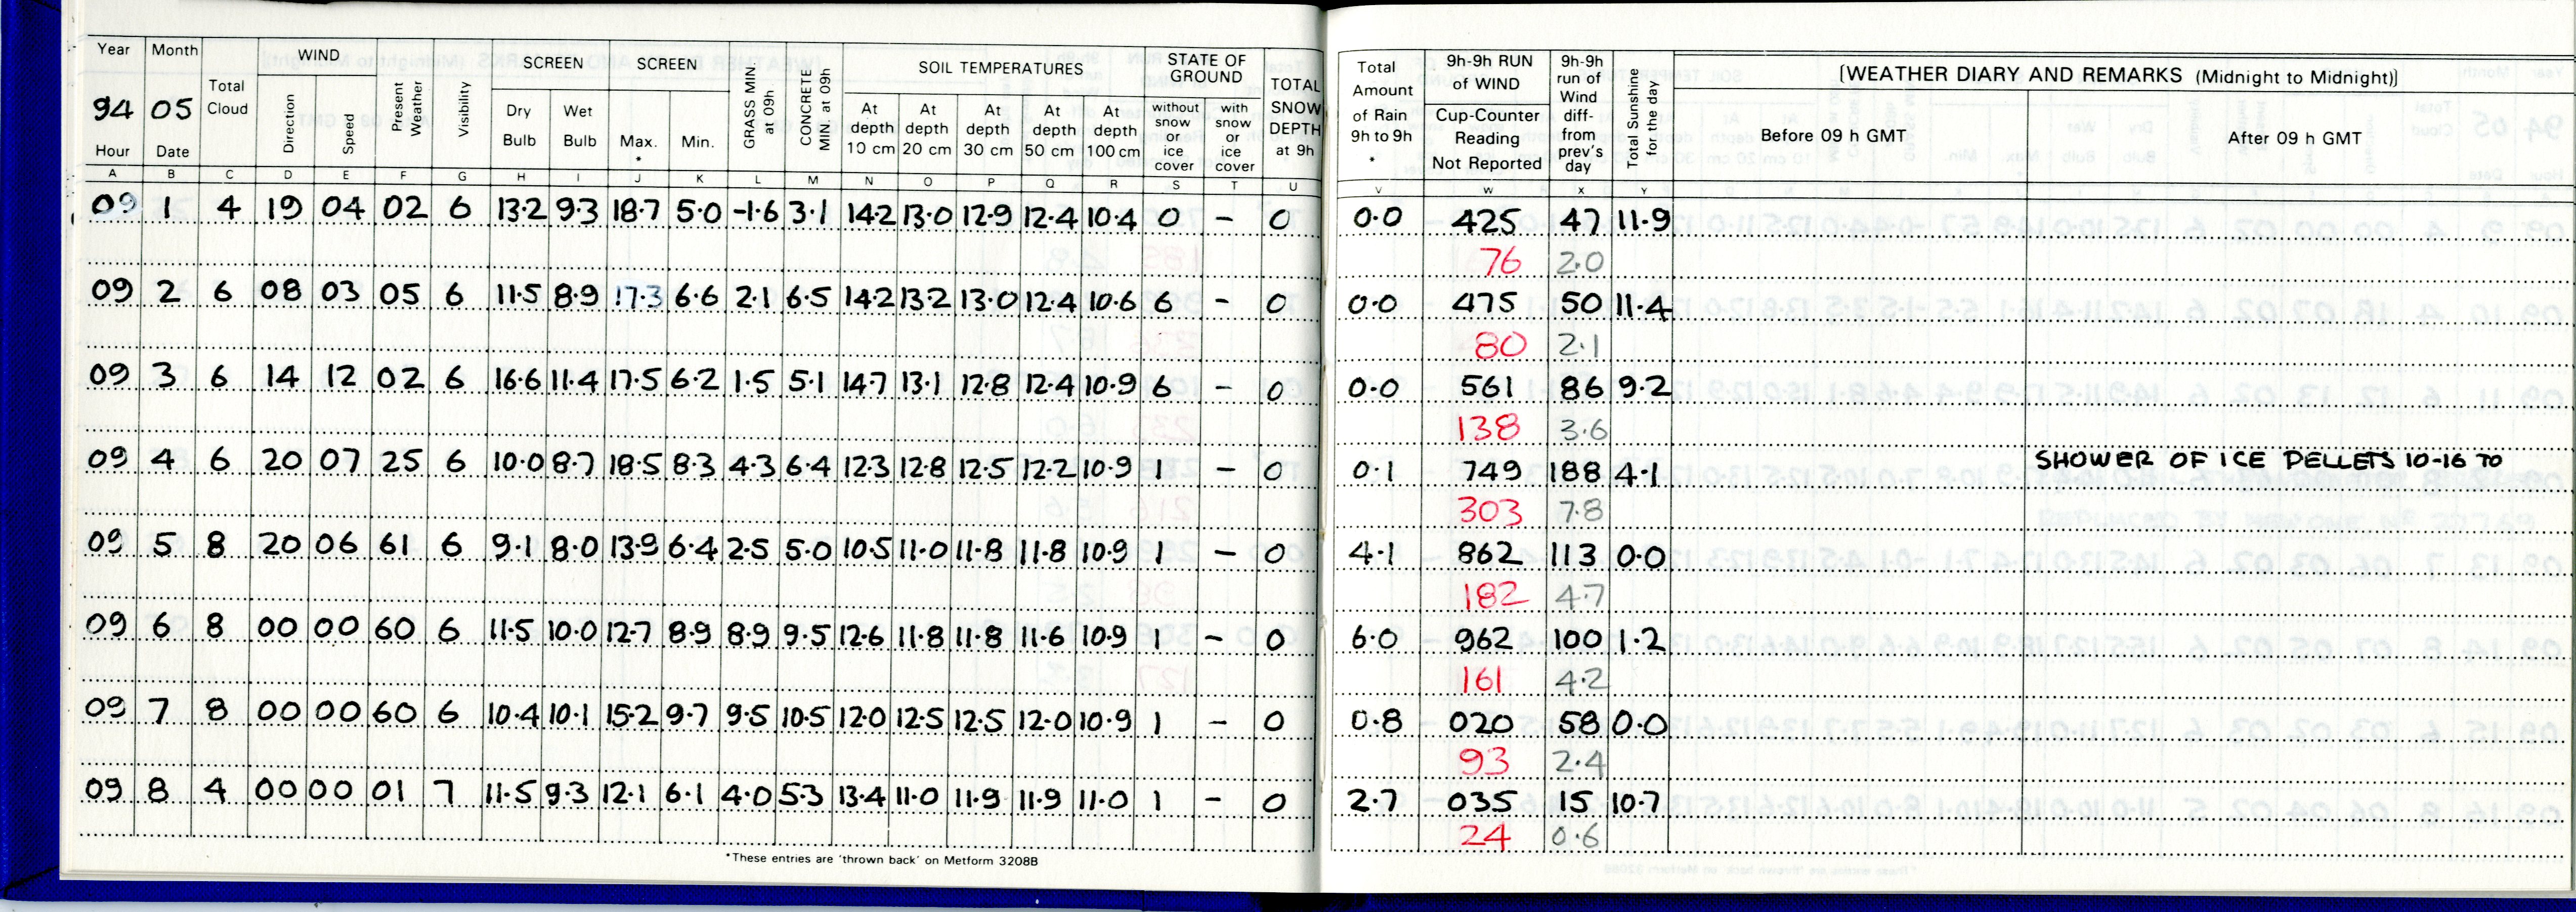 Year Month Total Cloud WIND Present Weather Visibility SCREEN SCREEN GRASS MIN. at 09h CONCRETE MIN at 09h SOIL TEMPERATURES STATE OF GROUND TOTAL SNOW DEPTH at 9h
94 05 Direction Speed Dry Bulb Wet Bulb Max. * Min. At depth 10 cm At depth 20 cm At depth 30 cm At depth 50 cm At depth 100 cm without snow or ice cover with snow or ice cover
Hour Date
A B C D E F G H I J K L M N O P Q R S T U
09 1 4 19 04 02 6 13.2 9.3 18.7 5.0 -1.6 3.1 14.2 13.0 12.9 12.4 10.4 0 - 0
09 2 6 08 03 05 6 11.5 8.9 17.3 6.6 2.1 6.5 14.2 13.2 13.0 12.4 10.6 6 - 0
09 3 6 14 12 02 6 16.6 11.4 17.5 6.2 1.5 5.1 14.7 13.1 12.8 12.4 10.9 6 - 0
09 4 6 20 07 25 6 10.0 8.7 18.5 8.3 4.3 6.4 12.3 12.8 12.5 12.2 10.9 1 - 0
09 5 8 20 06 61 6 9.1 8.0 13.9 6.4 2.5 5.0 10.5 11.0 11.8 11.8 10.9 1 - 0
09 6 8 00 00 60 6 11.5 10.0 12.7 8.9 8.9 9.5 12.6 11.8 11.8 11.6 10.9 1 - 0
09 7 8 00 00 60 6 10.4 10.1 15.2 9.7 9.5 10.5 12.0 12.5 12.5 12.0 10.9 1 - 0
09 8 4 00 00 01 7 11.5 9.3 12.1 6.1 4.0 5.3 13.4 11.0 11.9 11.9 11.0 1 - 0
*These entries are 'thrown back' on Metform 3208B
Total Amount of Rain 9h to 9h * 9h-9h RUN of WIND Cup-Counter Reading Not Reported 9h-9h run of Wind diff- from prev's day Total Sunshine for the day [WEATHER DIARY AND REMARKS (Midnight to Midnight)]
Before 09 h GMT After 09 h GMT
V W X Y
0.0 425 47 11.9
76 2.0
0.0 475 50 11.4
80 2.1
0.0 561 86 9.2
138 3.6
0.1 749 188 4.1 SHOWER OF ICE PELLETS 10-16 TO
303 7.8
4.1 862 113 0.0
182 4.7
6.0 962 100 1.2
161 4.2
0.8 020 58 0.0
93 2.4
2.7 035 15 10.7
24 0.6